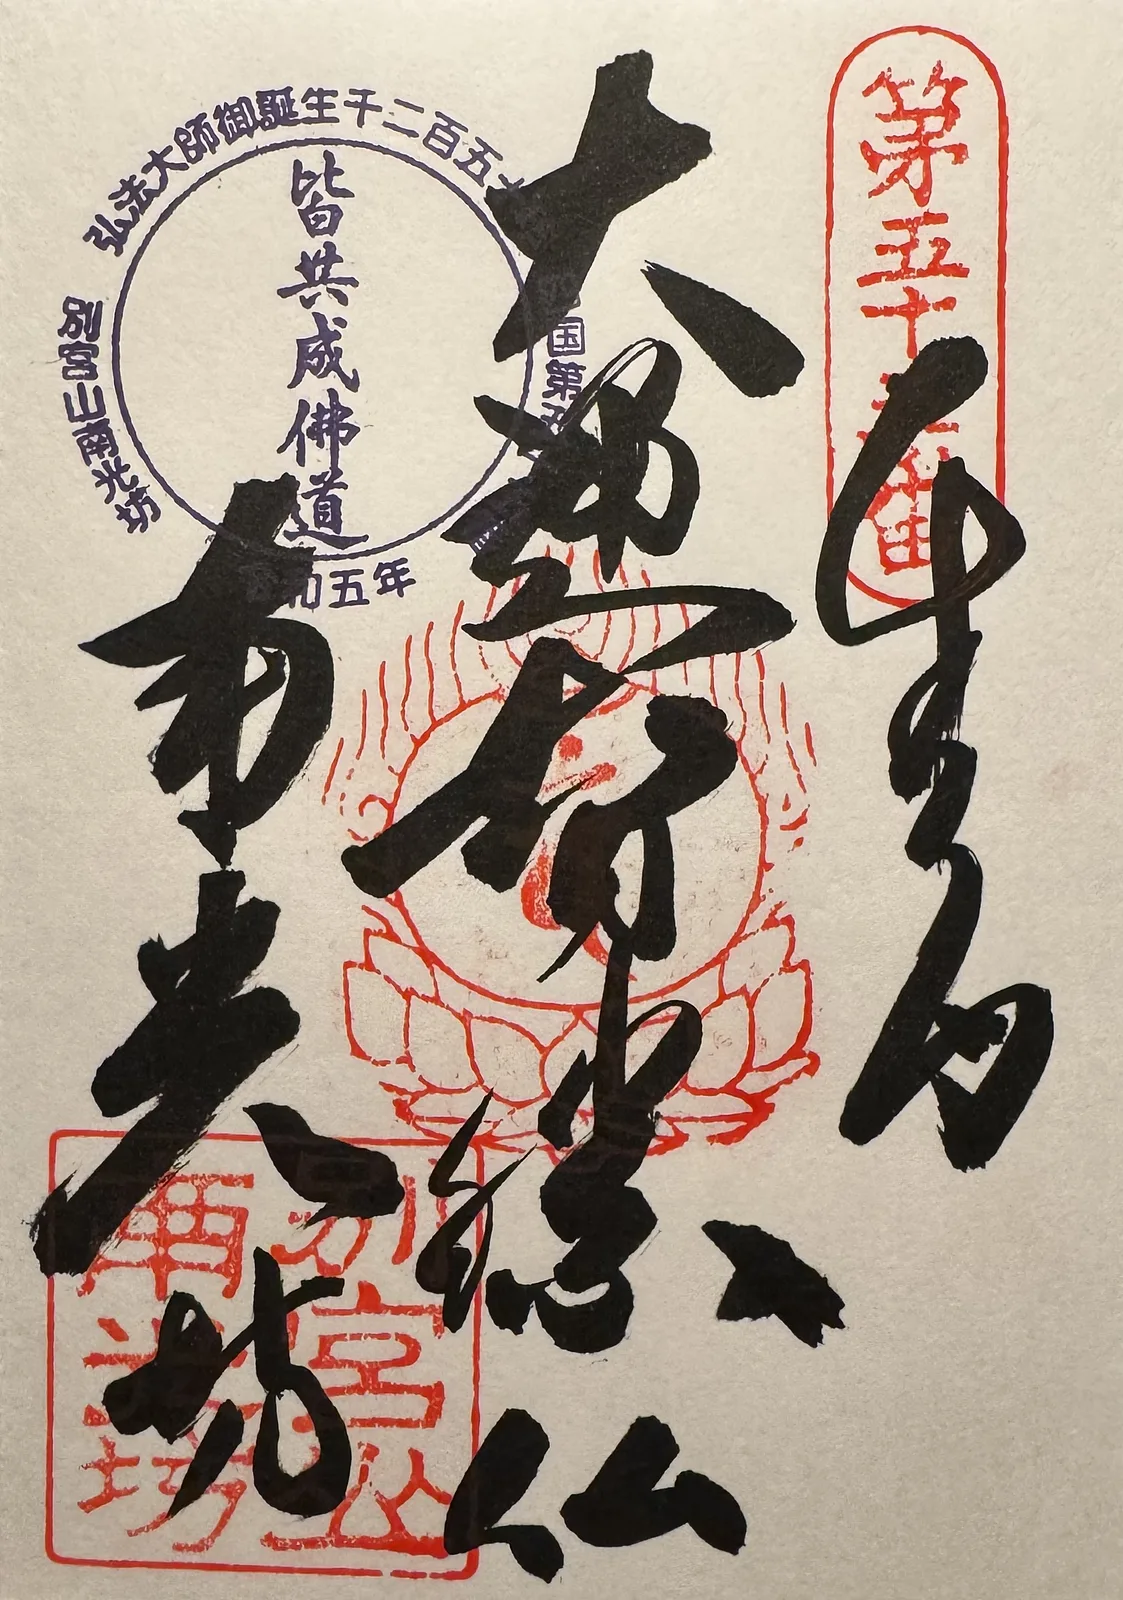 第五十五番
奉納
大通智勝仏
南光坊
弘法大師御誕生千二百五十
国第五
令和五年
別宮山南光坊
皆共成佛道
別宮山
南光坊